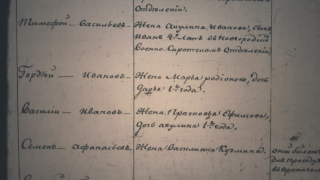 Отделенiи.
Тимофей — Васильевъ — Жена Акулина Иванова, Сынъ
Иванъ 4хъ Летъ въ Новгородскомъ
Военно-Сиротскомъ Отделенiи.
Гордѣй — Ивановъ — Жена Марья родiонова, дочь
Дарья 1го года.
Василiи — Ивановъ — Жена Прасковья Ефимова,
дочь акулина 1го года.
Семенъ — Афанасьевъ Жена Василиса Кузмина.